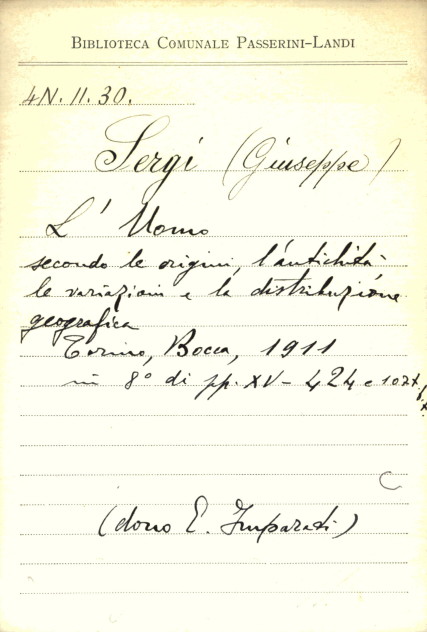 BIBLIOTECA COMUNALE PASSERINI-LANDI
4N. II. 30.
Sergi (Giuseppe)
L' Uomo
secondo le origini, l'antichità
le variazioni e la distribuzione
geografica
Torino, Bocca, 1911
in 8° di pp. XV - 424 e
(dono E. Imparati)